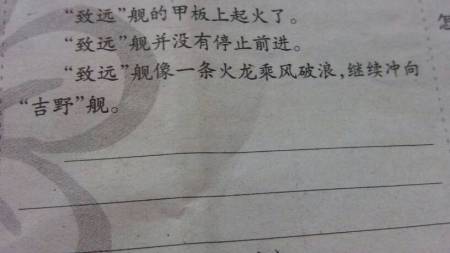 “致远”舰的甲板上起火了。
“致远”舰并没有停止前进。
“致远”舰像一条火龙乘风破浪,继续冲向
“吉野”舰。